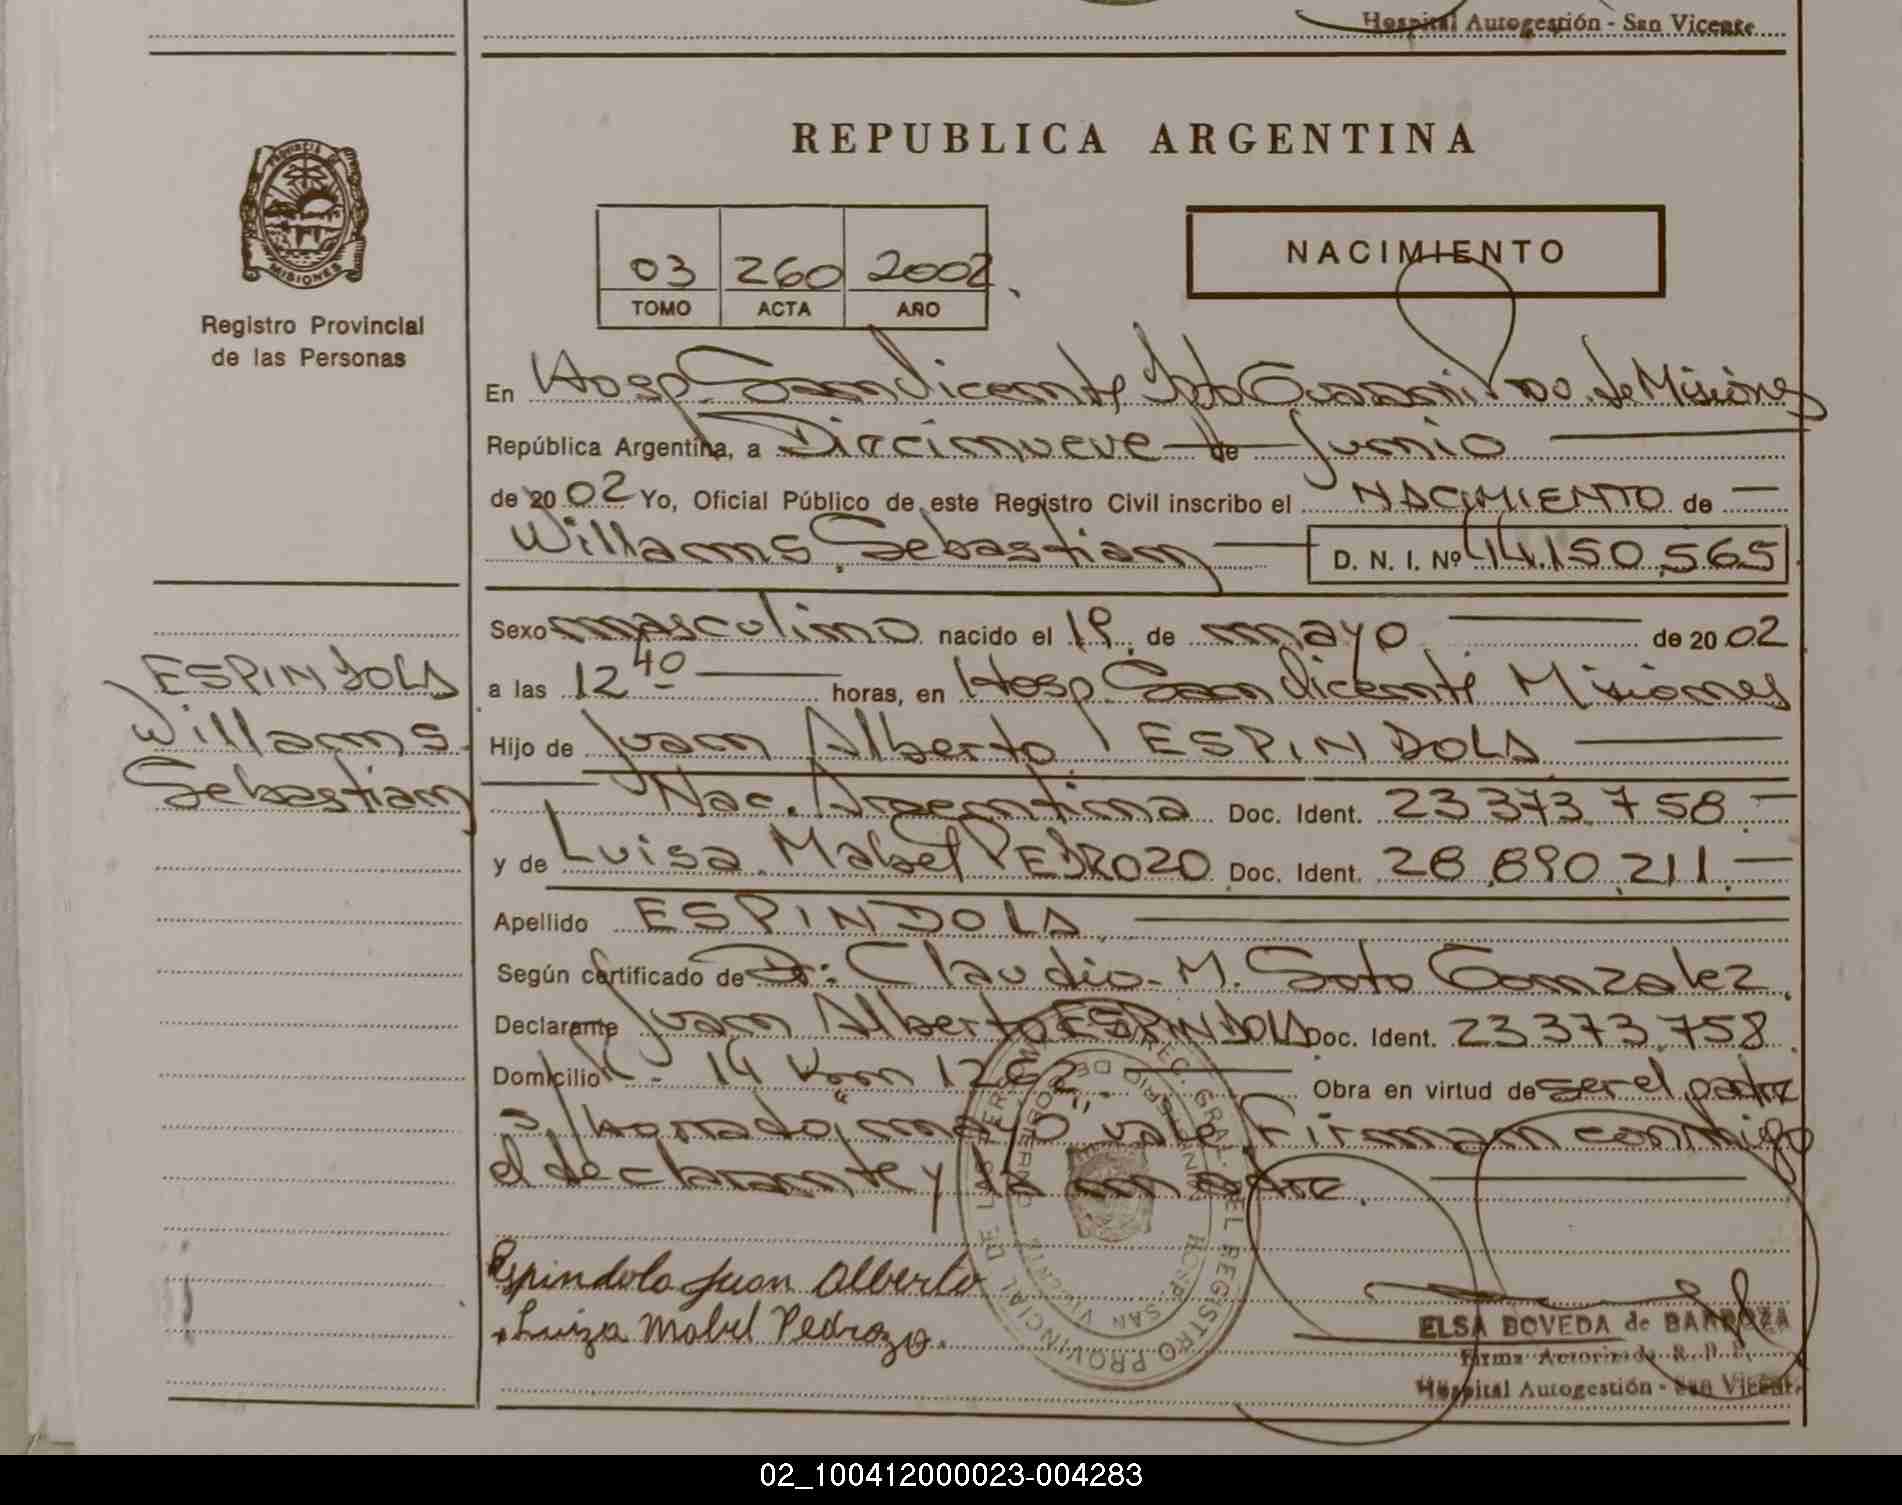 Hospital Autogestión - San Vicente
REPUBLICA ARGENTINA
PROVINCIA DE
MISIONES
Registro Provincial
de las Personas
03 260 2002
TOMO ACTA AÑO
NACIMIENTO
En Hosp. San Vicente Dpto Guaraní Pro. de Misiones
República Argentina, a Diecinueve de Junio
de 20 02 Yo, Oficial Público de este Registro Civil inscribo el NACIMIENTO de
Willams Sebastian D. N. I. Nº 44.150.565
Sexo masculino nacido el 19 de mayo de 20 02
a las 12 40 horas, en Hosp. San Vicente Misiones
Hijo de Juan Alberto ESPINDOLA
Nac. Argentina Doc. Ident. 23.373.758
y de Luisa Mabel PEDROZO Doc. Ident. 28.890.211
Apellido ESPINDOLA
Según certificado de Dr: Claudio M. Soto Gonzalez
Declarante Juan Alberto ESPINDOLA Doc. Ident. 23.373.758
Domicilio R. 14 Km 1262 Obra en virtud de ser el padre
s/borrado "mayo" vale. Firman conmigo
el declarante y la madre.
Espindola Juan Alberto
Luiza Mabel Pedrozo.
ESPINDOLA
Willams
Sebastian
ELSA BOVEDA de BARBOZA
Firma Autorizada R. P. P.
Hospital Autogestión - San Vicente
REGISTRO PROVINCIAL DE LAS PERSONAS
HOSP. SAN VICENTE
02_100412000023-004283